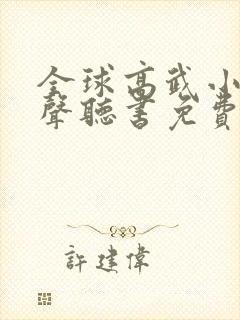 全球高武小
聲聽書免費
許建偉